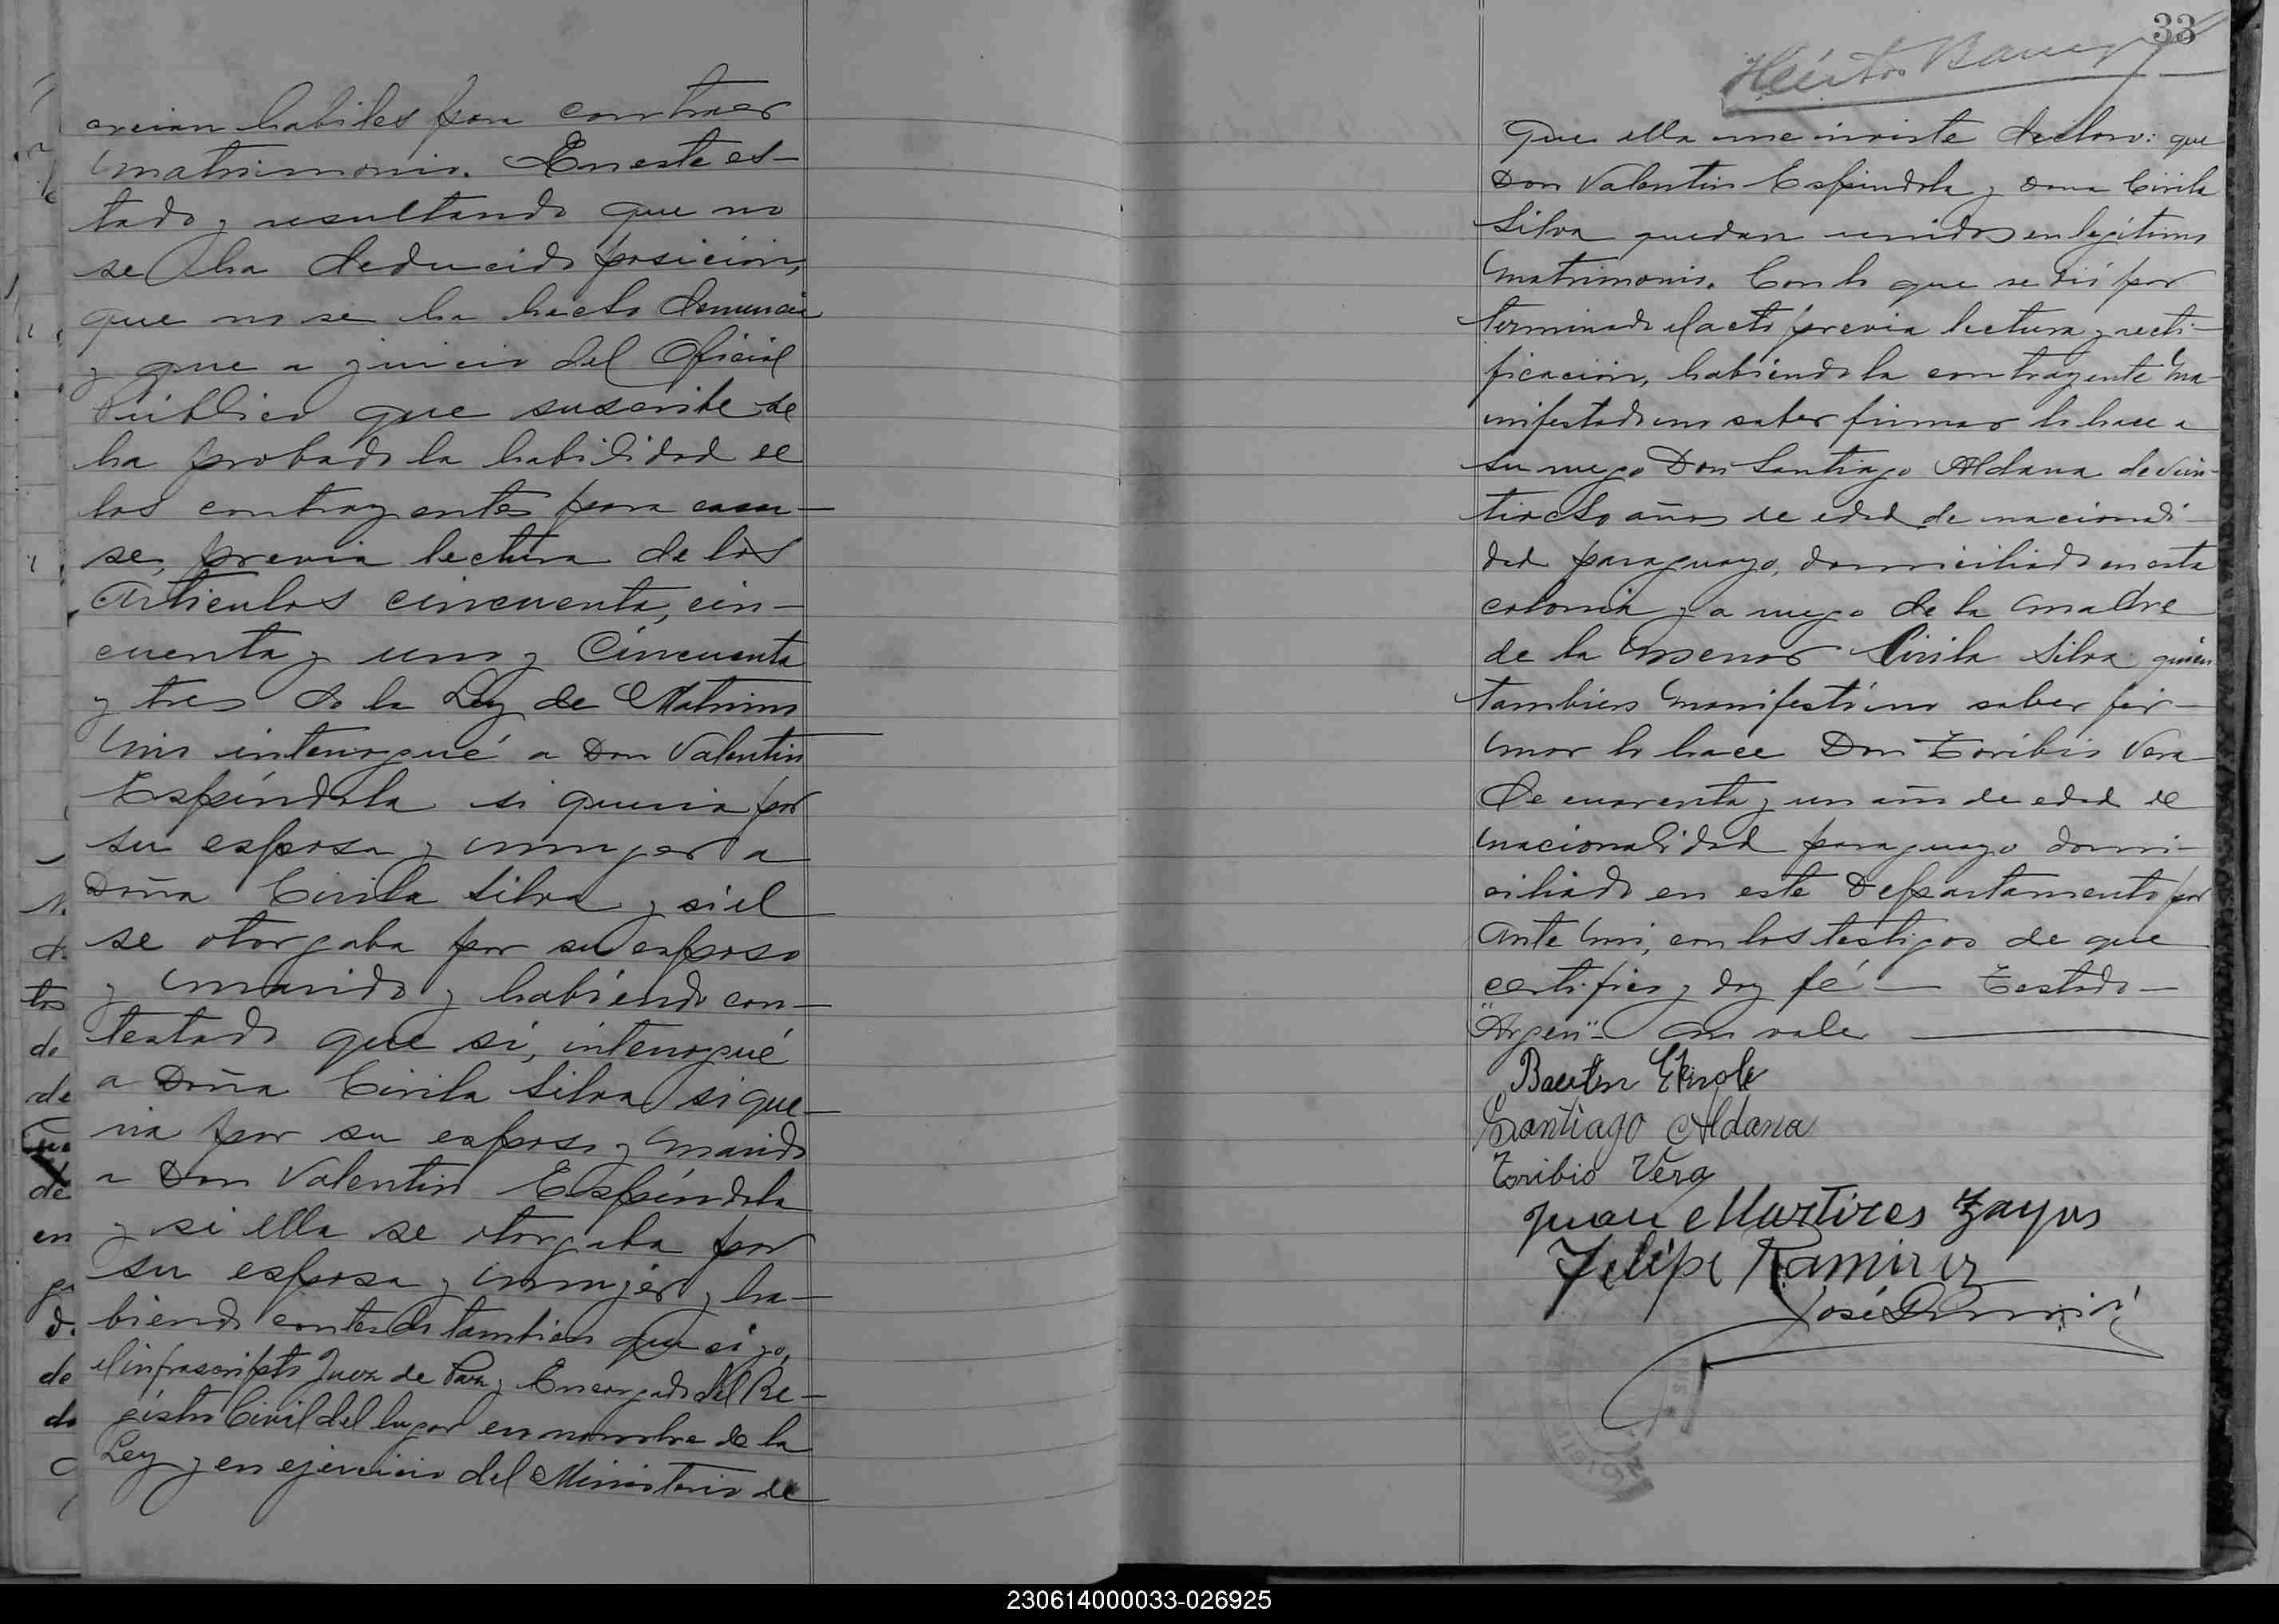 creian habiles para contraer
matrimonio. En este es-
tado y resultando que no
se ha deducido posición,
que no se ha hecho denuncia
y que a juicio del Oficial
Público que suscribe se
ha probado la habilidad de
los contrayentes para casar-
se, previa lectura de los
Artículos cincuenta, cin-
cuenta y uno y Cincuenta
y tres de la Ley de Matrimo
nio interrogué a Don Valentin
Espíndola si queria por
su esposa y mujer a
Doña Cirila Silva y si el
se otorgaba por su esposo
y marido y habiendo con-
testado que sí, interrogué
a Doña Cirila Silva si que-
ria por su esposo y marido
a Don Valentin Espíndola
y si ella se otorgaba por
su esposa y mujer y ha-
biendo contesdo tambien que si yo,
el infrascripto Juez de Paz y Encargado del Re-
gistro Civil del lugar en nombre de la
Ley y en ejercicio del Ministerio de
33
Que ella me inviste declaro: que
Don Valentin Espíndola y Dona Cirila
Silva quedan unidos en legítimo
Matrimonio. Con lo que se dió por
terminado el acto previa lectura y recti-
ficación, habiendo la contrayente ma-
nifestado no saber firmar lo hace a
su ruego Don Santiago Aldana de vein-
tiocho años de edad de nacionali-
dad paraguayo, domiciliado en esta
colonia y a ruego de la madre
de la menor Cirila Silva quien
tambien manifestó no saber fir-
mar lo hace Don Toribio Vera
De cuarenta y un año de edad de
nacionalidad paraguayo domi-
ciliado en este Departamento por
ante mi, con los testigos de que
certifico y doy fé — Testado —
"Argen" — no vale
Santiago Aldana
Toribio Vera
Juan Martires Zayas
Felipe Ramirez
José
230614000033-026925